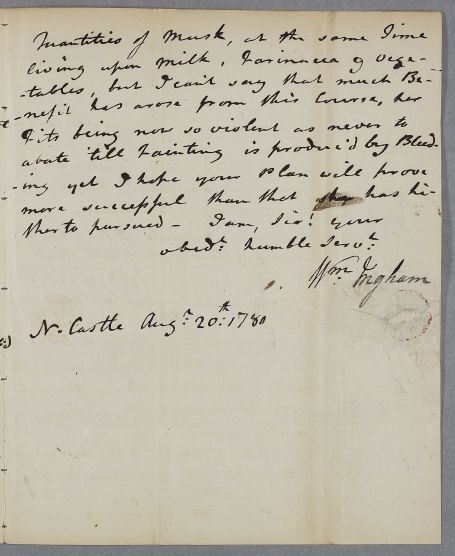 Quantities of Musk, at the same Time
living upon Milk, Farinacea & Vege-
-tables, but I can't say that much Be-
-nefit has arose from this Course, her
Fits being now so violent as never to
abate 'till Fainting is produc'd by Bleed-
-ing yet I hope your Plan will prove
more successful than that she has hi-
therto pursued - I am, Sir! your
obedt. humble Servt.
Wm. Ingham
N. Castle Augt. 20th: 1780